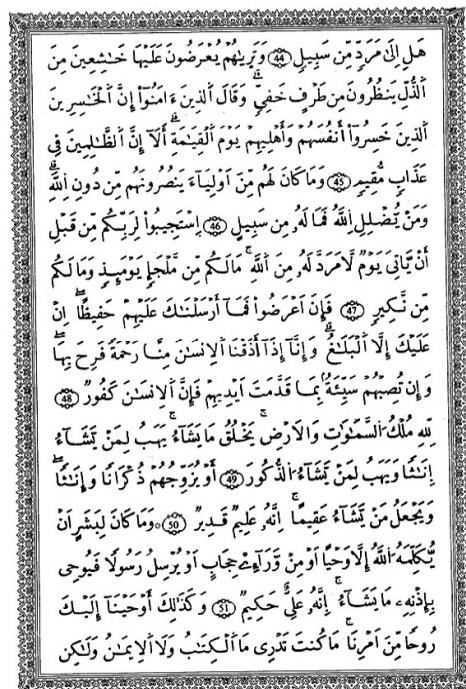 هَلْ اِلٰى مَرَدٍّ مِّنْ سَبِيْلٍ ۝44 وَتَرٰىهُمْ يُعْرَضُوْنَ عَلَيْهَا خٰشِعِيْنَ مِنَ
الذُّلِّ يَنْظُرُوْنَ مِنْ طَرْفٍ خَفِيٍّ ۗ وَقَالَ الَّذِيْنَ ءَامَنُوْٓا اِنَّ الْخٰسِرِيْنَ
الَّذِيْنَ خَسِرُوْٓا اَنْفُسَهُمْ وَاَهْلِيْهِمْ يَوْمَ الْقِيٰمَةِ ۗ اَلَآ اِنَّ الظّٰلِمِيْنَ فِيْ
عَذَابٍ مُّقِيْمٍ ۝45 وَمَا كَانَ لَهُمْ مِّنْ اَوْلِيَآءَ يَنْصُرُوْنَهُمْ مِّنْ دُوْنِ اللّٰهِ ۗ
وَمَنْ يُّضْلِلِ اللّٰهُ فَمَا لَهٗ مِنْ سَبِيْلٍ ۝46 اِسْتَجِيْبُوْا لِرَبِّكُمْ مِّنْ قَبْلِ
اَنْ يَّأْتِيَ يَوْمٌ لَّا مَرَدَّ لَهٗ مِنَ اللّٰهِ ۚ مَا لَكُمْ مِّنْ مَّلْجَاٍ يَّوْمَىِٕذٍ وَّمَا لَكُمْ
مِّنْ نَّكِيْرٍ ۝47 فَاِنْ اَعْرَضُوْا فَمَآ اَرْسَلْنٰكَ عَلَيْهِمْ حَفِيْظًا ۖ اِنْ
عَلَيْكَ اِلَّا الْبَلٰغُ ۗ وَاِنَّآ اِذَآ اَذَقْنَا الْاِنْسٰنَ مِنَّا رَحْمَةً فَرِحَ بِهَا ۖ
وَاِنْ تُصِبْهُمْ سَيِّئَةٌۢ بِمَا قَدَّمَتْ اَيْدِيْهِمْ فَاِنَّ الْاِنْسٰنَ كَفُوْرٌ ۝48
لِلّٰهِ مُلْكُ السَّمٰوٰتِ وَالْاَرْضِ ۚ يَخْلُقُ مَا يَشَآءُ ۚ يَهَبُ لِمَنْ يَّشَآءُ
اِنٰثًا وَّيَهَبُ لِمَنْ يَّشَآءُ الذُّكُوْرَ ۝49 اَوْ يُزَوِّجُهُمْ ذُكْرَانًا وَّاِنٰثًا ۖ
وَيَجْعَلُ مَنْ يَّشَآءُ عَقِيْمًا ۚ اِنَّهٗ عَلِيْمٌ قَدِيْرٌ ۝50 وَمَا كَانَ لِبَشَرٍ اَنْ
يُّكَلِّمَهُ اللّٰهُ اِلَّا وَحْيًا اَوْ مِنْ وَّرَآئِ حِجَابٍ اَوْ يُرْسِلَ رَسُوْلًا فَيُوْحِيَ
بِاِذْنِهٖ مَا يَشَآءُ ۚ اِنَّهٗ عَلِيٌّ حَكِيْمٌ ۝51 وَكَذٰلِكَ اَوْحَيْنَآ اِلَيْكَ
رُوْحًا مِّنْ اَمْرِنَا ۚ مَا كُنْتَ تَدْرِيْ مَا الْكِتٰبُ وَلَا الْاِيْمٰنُ وَلٰكِنْ